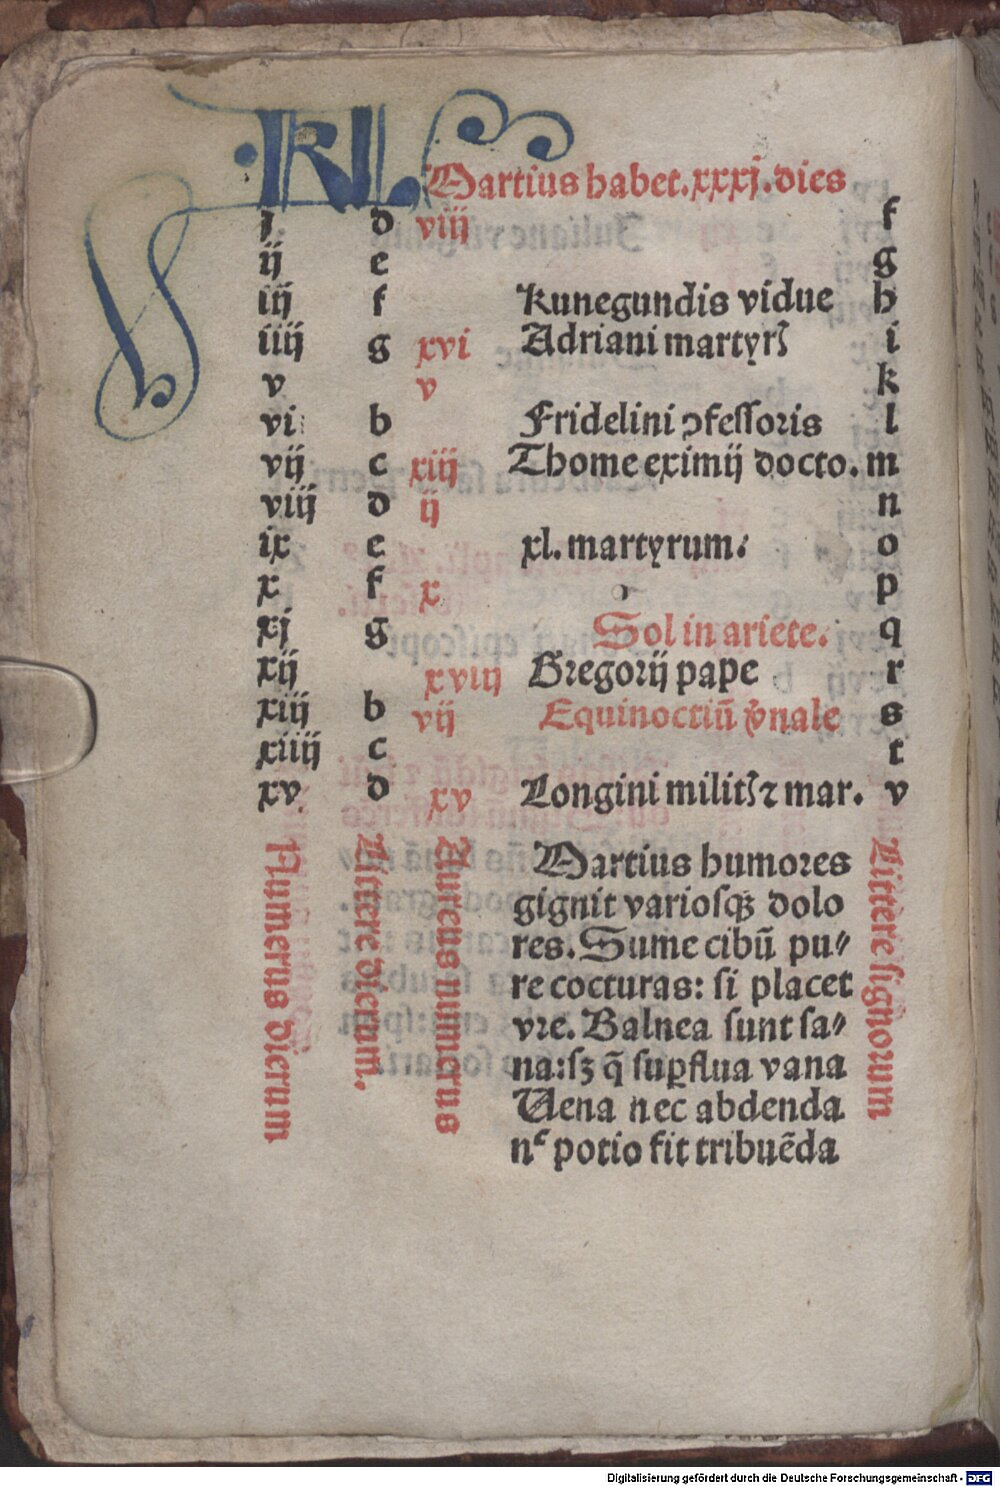 KL Martius habet.xxxj.dies
j d viij f
ij e g
iij f Kunegundis vidue h
iiij g xvi Adriani martyrꝭ i
v v k
vi b Fridelini ꝯfeſſoꝛis l
vij c xiij Thome eximij docto. m
viij d ij n
ix e xl. martyrum. o
x f x p
xj g Sol in ariete. q
xij xviij Gregoꝛij pape r
xiij b vij Equinoctiũ v̓nale s
xiiij c t
xv d xv Longini militꝭ ⁊ mar. v
Numerus dierum
Littere dierum.
Aureus numerus
Littere ſignorum
Martius humoꝛes
gignit varioſqꝫ dolo
res. Sume cibũ pu⸗
re cocturas: ſi placet
vꝛe. Balnea ſunt ſa⸗
na: ſꝫ q̃ ſuꝑflua vana
Uena nec abdenda
nᶜ potio fit tribuẽda
Digitalisierung gefördert durch die Deutsche Forschungsgemeinschaft - DFG